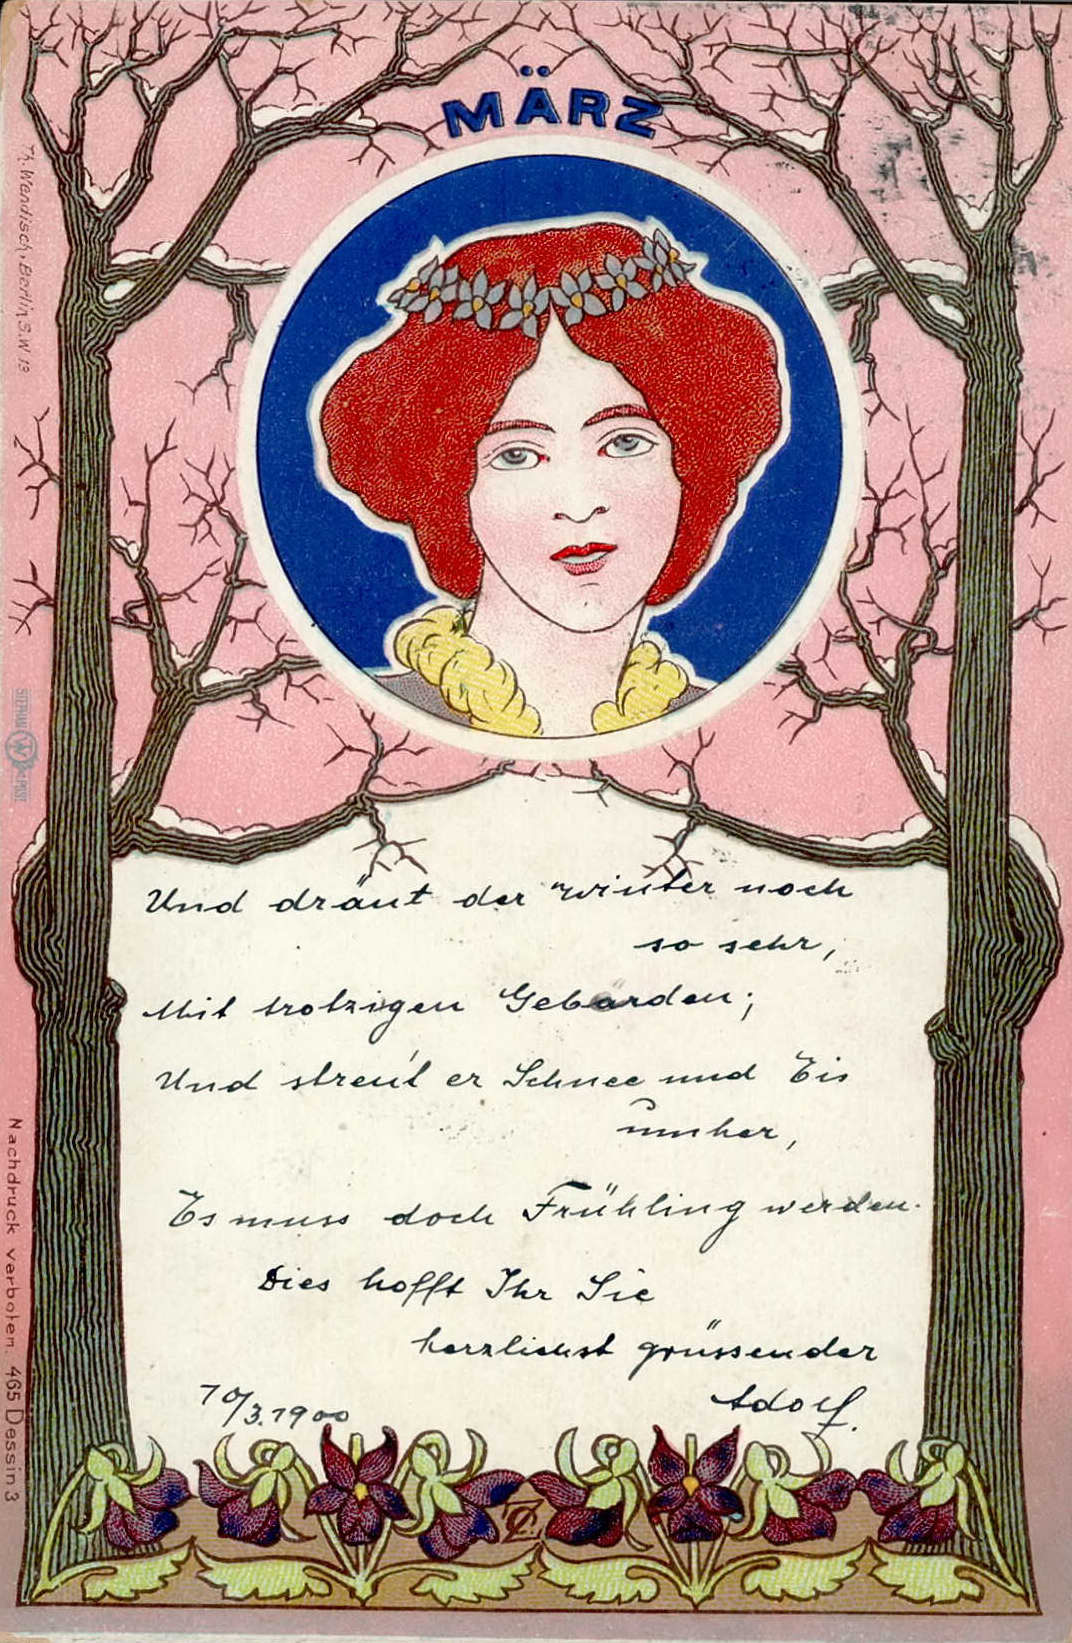 MÄRZ
Th. Wendisch, Berlin S.W 19
STEPHAN POST
Und dräut der Winter noch
so sehr,
Mit trotzigen Gebärden;
Und streut er Schnee und Eis
umher,
Es muss doch Frühling werden.
Dies hofft Ihr Sie
herzlichst grüssender
Adolf.
10/3.1900
Nachdruck verboten. 465 Dessin 3